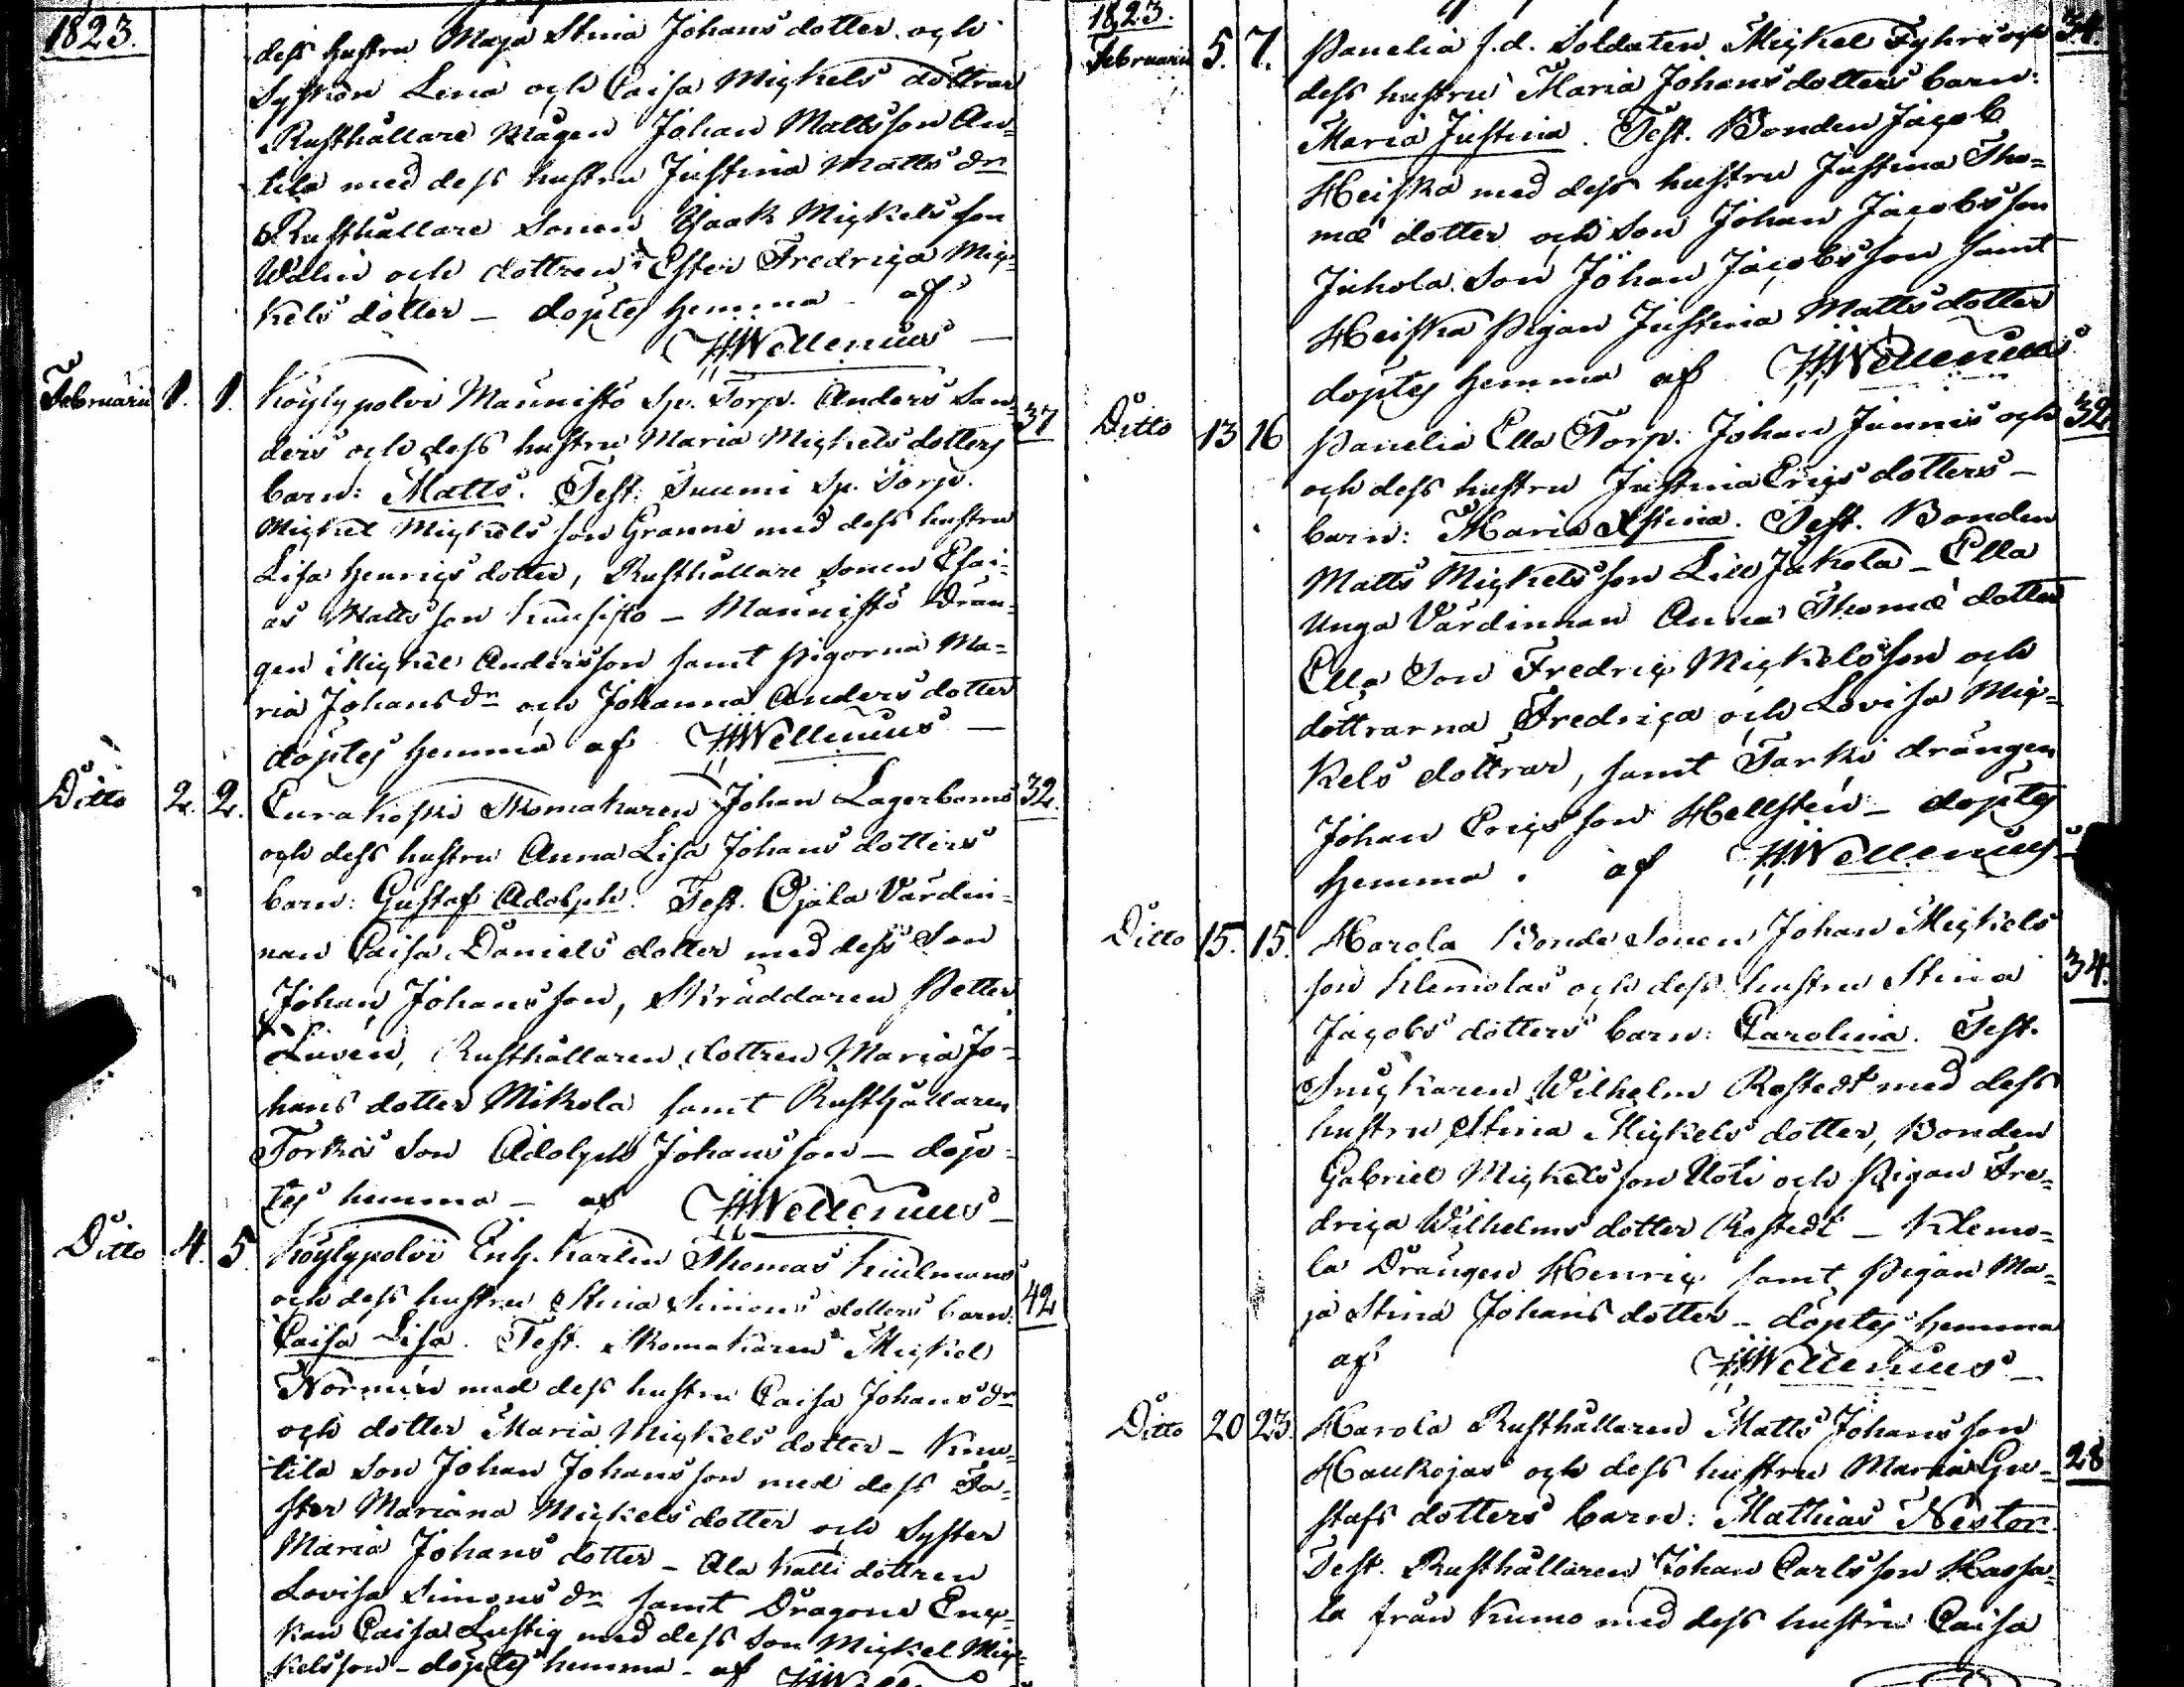 1823.
dess hustru Maja Stina Johans dotter och
Syskon Lena och Caisa Mickels döttrar
Rusthållare Mågen Johan Mattsson An-
tila med dess hustru Justina Matts dr
Rusthållare Sonen Isaak Mickelsson
Wallin och dottren Ester Fredrica Mic-
kels dotter – döptes hemma af
HWellenius –
Februarii 1. 1. Köylypolvi Mannisto Sp. Torp. Anders San- 37
ders och dess hustru Maria Mickels dotters
barn: Matts. Test. Suumi Sp. Torp.
Mickel Mickels son Granni med dess hustru
Lisa Henrics dotter, Rusthållare Sonen Esai-
as Matts son Kuusisto – Mannisto Drän-
gen Mickel Andersson samt Pigorna Ma-
ria Johans dr och Johanna Anders dotter
döptes hemma af HWellenius –
Ditto 2. 2. Eurakoski Skomakaren Johan Lagerboms 32.
och dess hustru Anna Lisa Johans dotters
barn: Gustaf Adolph. Test. Ojala Värdin-
nan Caisa Daniels dotter med dess Son
Johan Johansson, Skräddaren Petter
Luren, Rusthållaren dottren Maria Jo-
hans dotter Mikola samt Rusthållaren
Torkis Son Adolph Johansson – döp-
tes hemma – af HWellenius –
Ditto 4. 5 Köylypolvi Enk. Karlen Thomas Kuulmans
och dess hustru Stina Simons dotters barn: 42
Caisa Lisa. Test. Skomakaren Mickel
Normén med dess hustru Caisa Johans dr
och dotter Maria Mickels dotter – Knu-
tila Son Johan Johansson med dess Fa-
ster Mariana Mickels dotter och Syster
Maria Johans dotter – Ala Kalli dottren
Lovisa Simons dr samt Dragone Enc-
kan Caisa Lustig med dess Son Mickel Mic-
kelsson – döptes hemma – af HWell
1823.
Februarii 5. 7. Panelia f.d. Soldaten Mickel Fyhrs och 34.
dess hustru Maria Johans dotters barn:
Maria Justina. Test. Bonden Jacob
Heiska med dess hustru Justina Tho-
mæ dotter och Son Johan Jacobsson
Juhola Son Johan Jacobsson samt
Heiska Pigan Justina Matts dotter
döptes hemma af HWellenius
Ditto 13 16 Panelia Ella Torp. Johan Junnis och 32
och dess hustru Justina Erics dotters –
barn: Maria Stina. Test. Bonden
Matts Mickelsson Lill Jakola – Ella
Unga Värdinnan Anna Thomæ dotter
Ella Son Fredric Mickelsson och
döttrarna Fredrica och Lovisa Mic-
kels döttrar, samt Tarki drängen
Johan Ericsson Hellstén – döptes
hemma. af HWellenius
Ditto 15. 15. Harola Bonde Sonen Johan Mickels
son Klemolas och dess hustru Stina 34.
Jacobs dotters barn: Carolina. Test.
Snickaren Wilhelm Rostedt med dess
hustru Stina Mickels dotter, Bonden
Gabriel Mickelsson Uoti och Pigan Fre-
drica Wilhelms dotter Rostedt – Klemo-
la Drängen Henric samt Pigan Ma-
ja Stina Johans dotter – döptes hemma
af HWellenius –
Ditto 20 23. Harola Rusthållaren Matts Johansson
Haukojas och dess hustru Maria Gu- 28
stafs dotters barn: Mathias Nestor.
Test. Rusthållaren Johan Carlsson Kassa-
la från Kumo med dess hustru Caisa